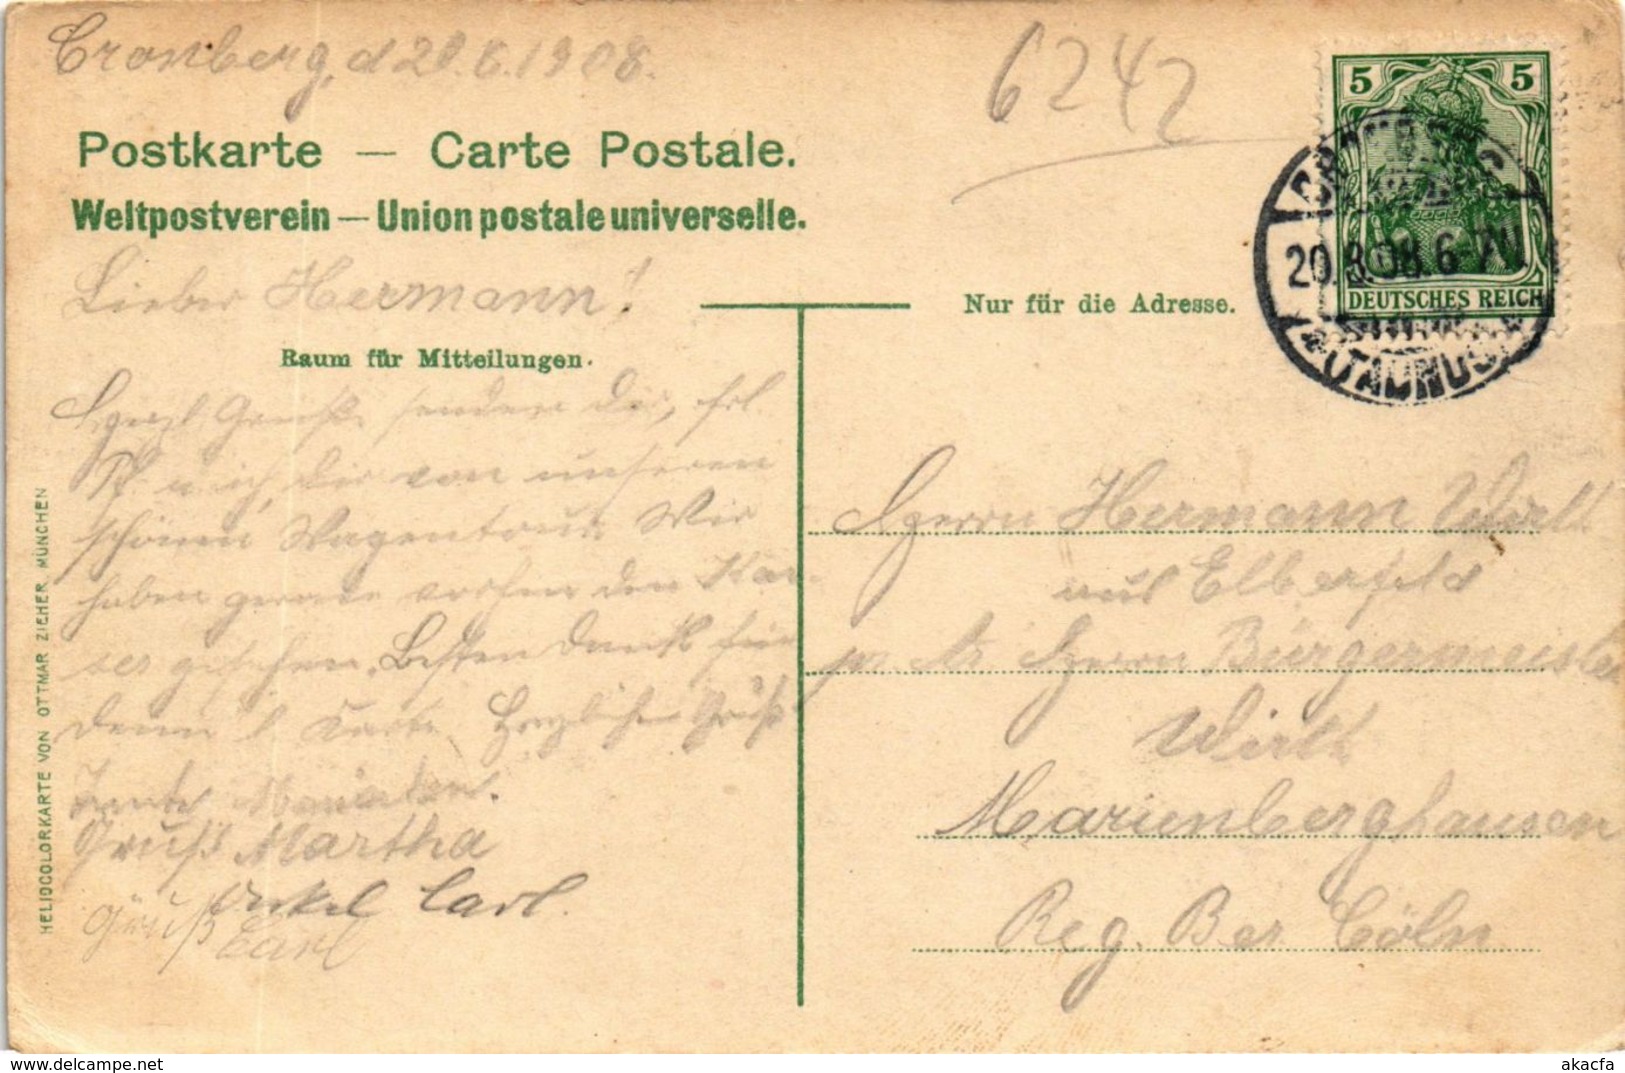 Cronberg, d 20.8.1908.
6242
Postkarte — Carte Postale.
Weltpostverein — Union postale universelle.
5 5
DEUTSCHES REICH
20.8.08.6-7N
(TAUNUS)
Lieber Hermann!
Nur für die Adresse.
Raum für Mitteilungen.
Herzl. Grüße senden Dir, Frl.
u ich, Dir von unseren
schönen Wagentour. Wir
haben gerade vorhin den Kai-
ser gesehen. Besten Dank für
Deine l. Karte. Herzlichen Gruß
Tante
Gruß Martha
Onkel Carl.
Gruß Carl
Herrn Hermann Wirth
aus Elberfeld
Herrn Bürgermeister
Wirth
Marienberghausen
Reg. Bez Cöln
HELIOCOLORKARTE VON OTTMAR ZIEHER, MÜNCHEN
www.delcampe.net
akacfa